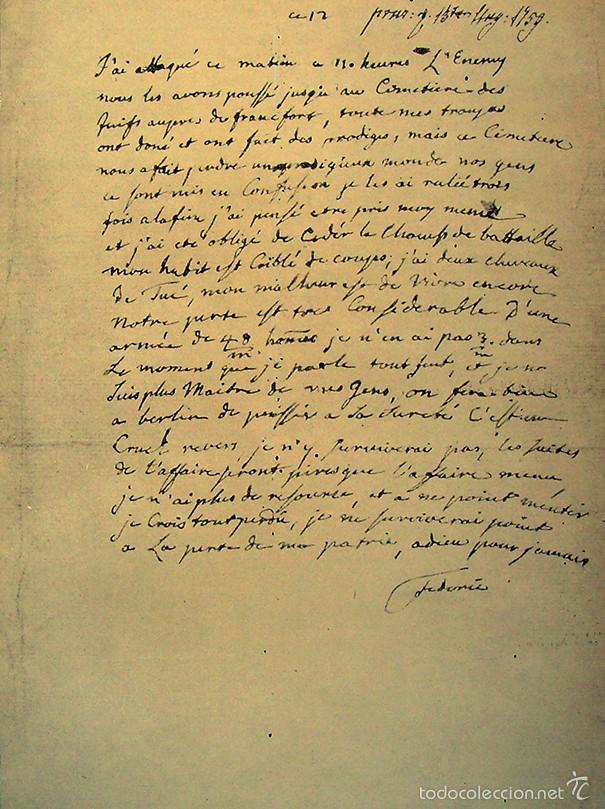 ce 12 praes. d. 13ten Aug. 1759.
J'ai attaqué ce matin a 11. heures L'Enemy
nous les avons poussé jusqu'au Cimetiere des
Juifs aupres de francfort, toute mes troupes
ont doné et ont fait des prodiges, mais ce Cimetiere
nous a fait perdre un prodigieux monde nos gens
ce sont mis en Confusion je les ai ralié trois
fois a la fin j'ai pensé etre pris moy meme
et j'ai eté obligé de Cedér le Champ de battaille
mon habit est Criblé de coups, j'ai deux chevaux
de Tué, mon malheur est de Vivre encore
Notre perte est tres Considerable D'une
armée de 48 m homes je n'en ai pas 3 m dans
Le moment que je parle tout fuit, et je ne
suis plus Maitre de mes Gens, on fera bien
a berlin de pensser a sa sureté C'est un
Cruel revers je n'y surviverai pas, les suites
de L'affaire seront pires que L'affaire meme
je n'ai plus de resourse, et a ne point mentir
je Crois tout perdu, je ne surviverai point
a La perte de ma patrie, adieu pour jamais
Federic
todocoleccion.net TC